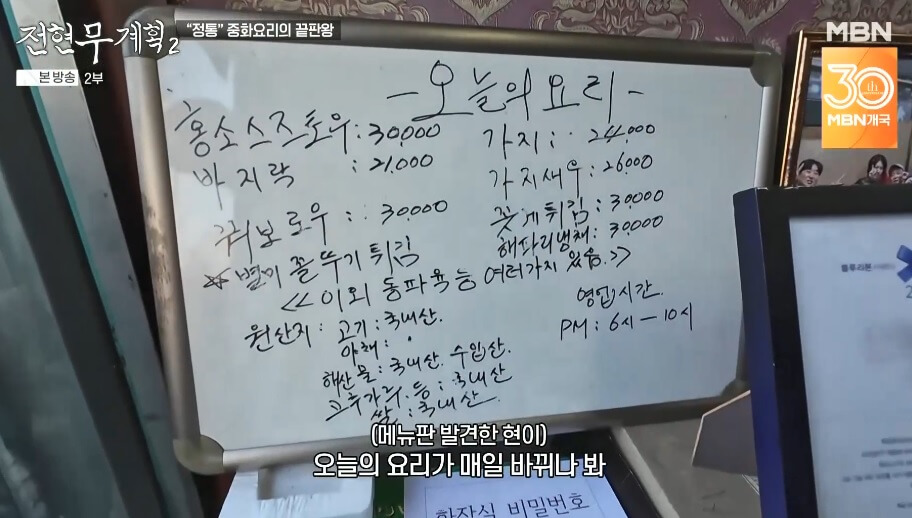 전현무계획2
본방송 2부
"정통" 중화요리의 끝판왕
MBN
30
MBN개국
-오늘의 요리-
홍소스즈토우: 30,000
바지락 : 21,000
꿔보로우 : 30,000
가지 : 24,000
가지새우 : 26,000
꽃게튀김 : 30,000
해파리냉채: 30,000
☆별미 쭐뚜기 튀김
<<이외 동파육 등 여러가지 있음.>>
원산지 : 고기 : 국내산.
야채 : 〃
해산물 : 국내산. 수입산.
고추가루. 등 : 국내산
쌀 : 국내산.
영업시간.
PM : 6시 - 10시
블루리본
화장실 비밀번호
(메뉴판 발견한 현이)
오늘의 요리가 매일 바뀌나 봐